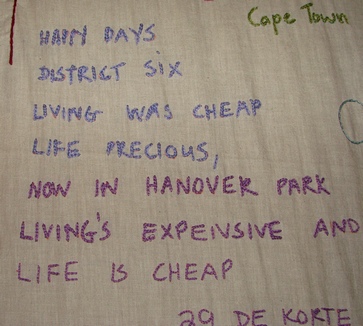 Cape Town
HAPPY DAYS
DISTRICT SIX
LIVING WAS CHEAP
LIFE PRECIOUS,
NOW IN HANOVER PARK
LIVING'S EXPEIVSIVE AND
LIFE IS CHEAP
29 DE KORTE